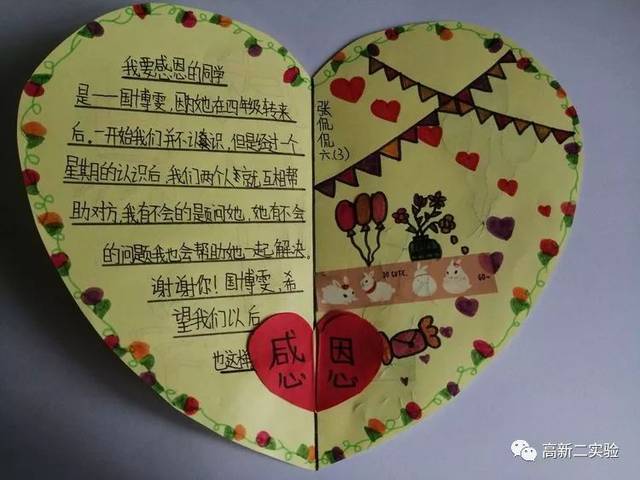 我要感恩的同学
是——国博雯,因为她在四年级转来
后。一开始我们并不认识,但是经过一个
星期的认识后,我们两个人就互相帮
助对方,我有不会的题问她,她有不会
的问题我也会帮助她一起解决。
谢谢你!国博雯,希
望我们以后
也这样
感恩
张侃侃
六(3)
SO CUTE.
GO~
高新二实验